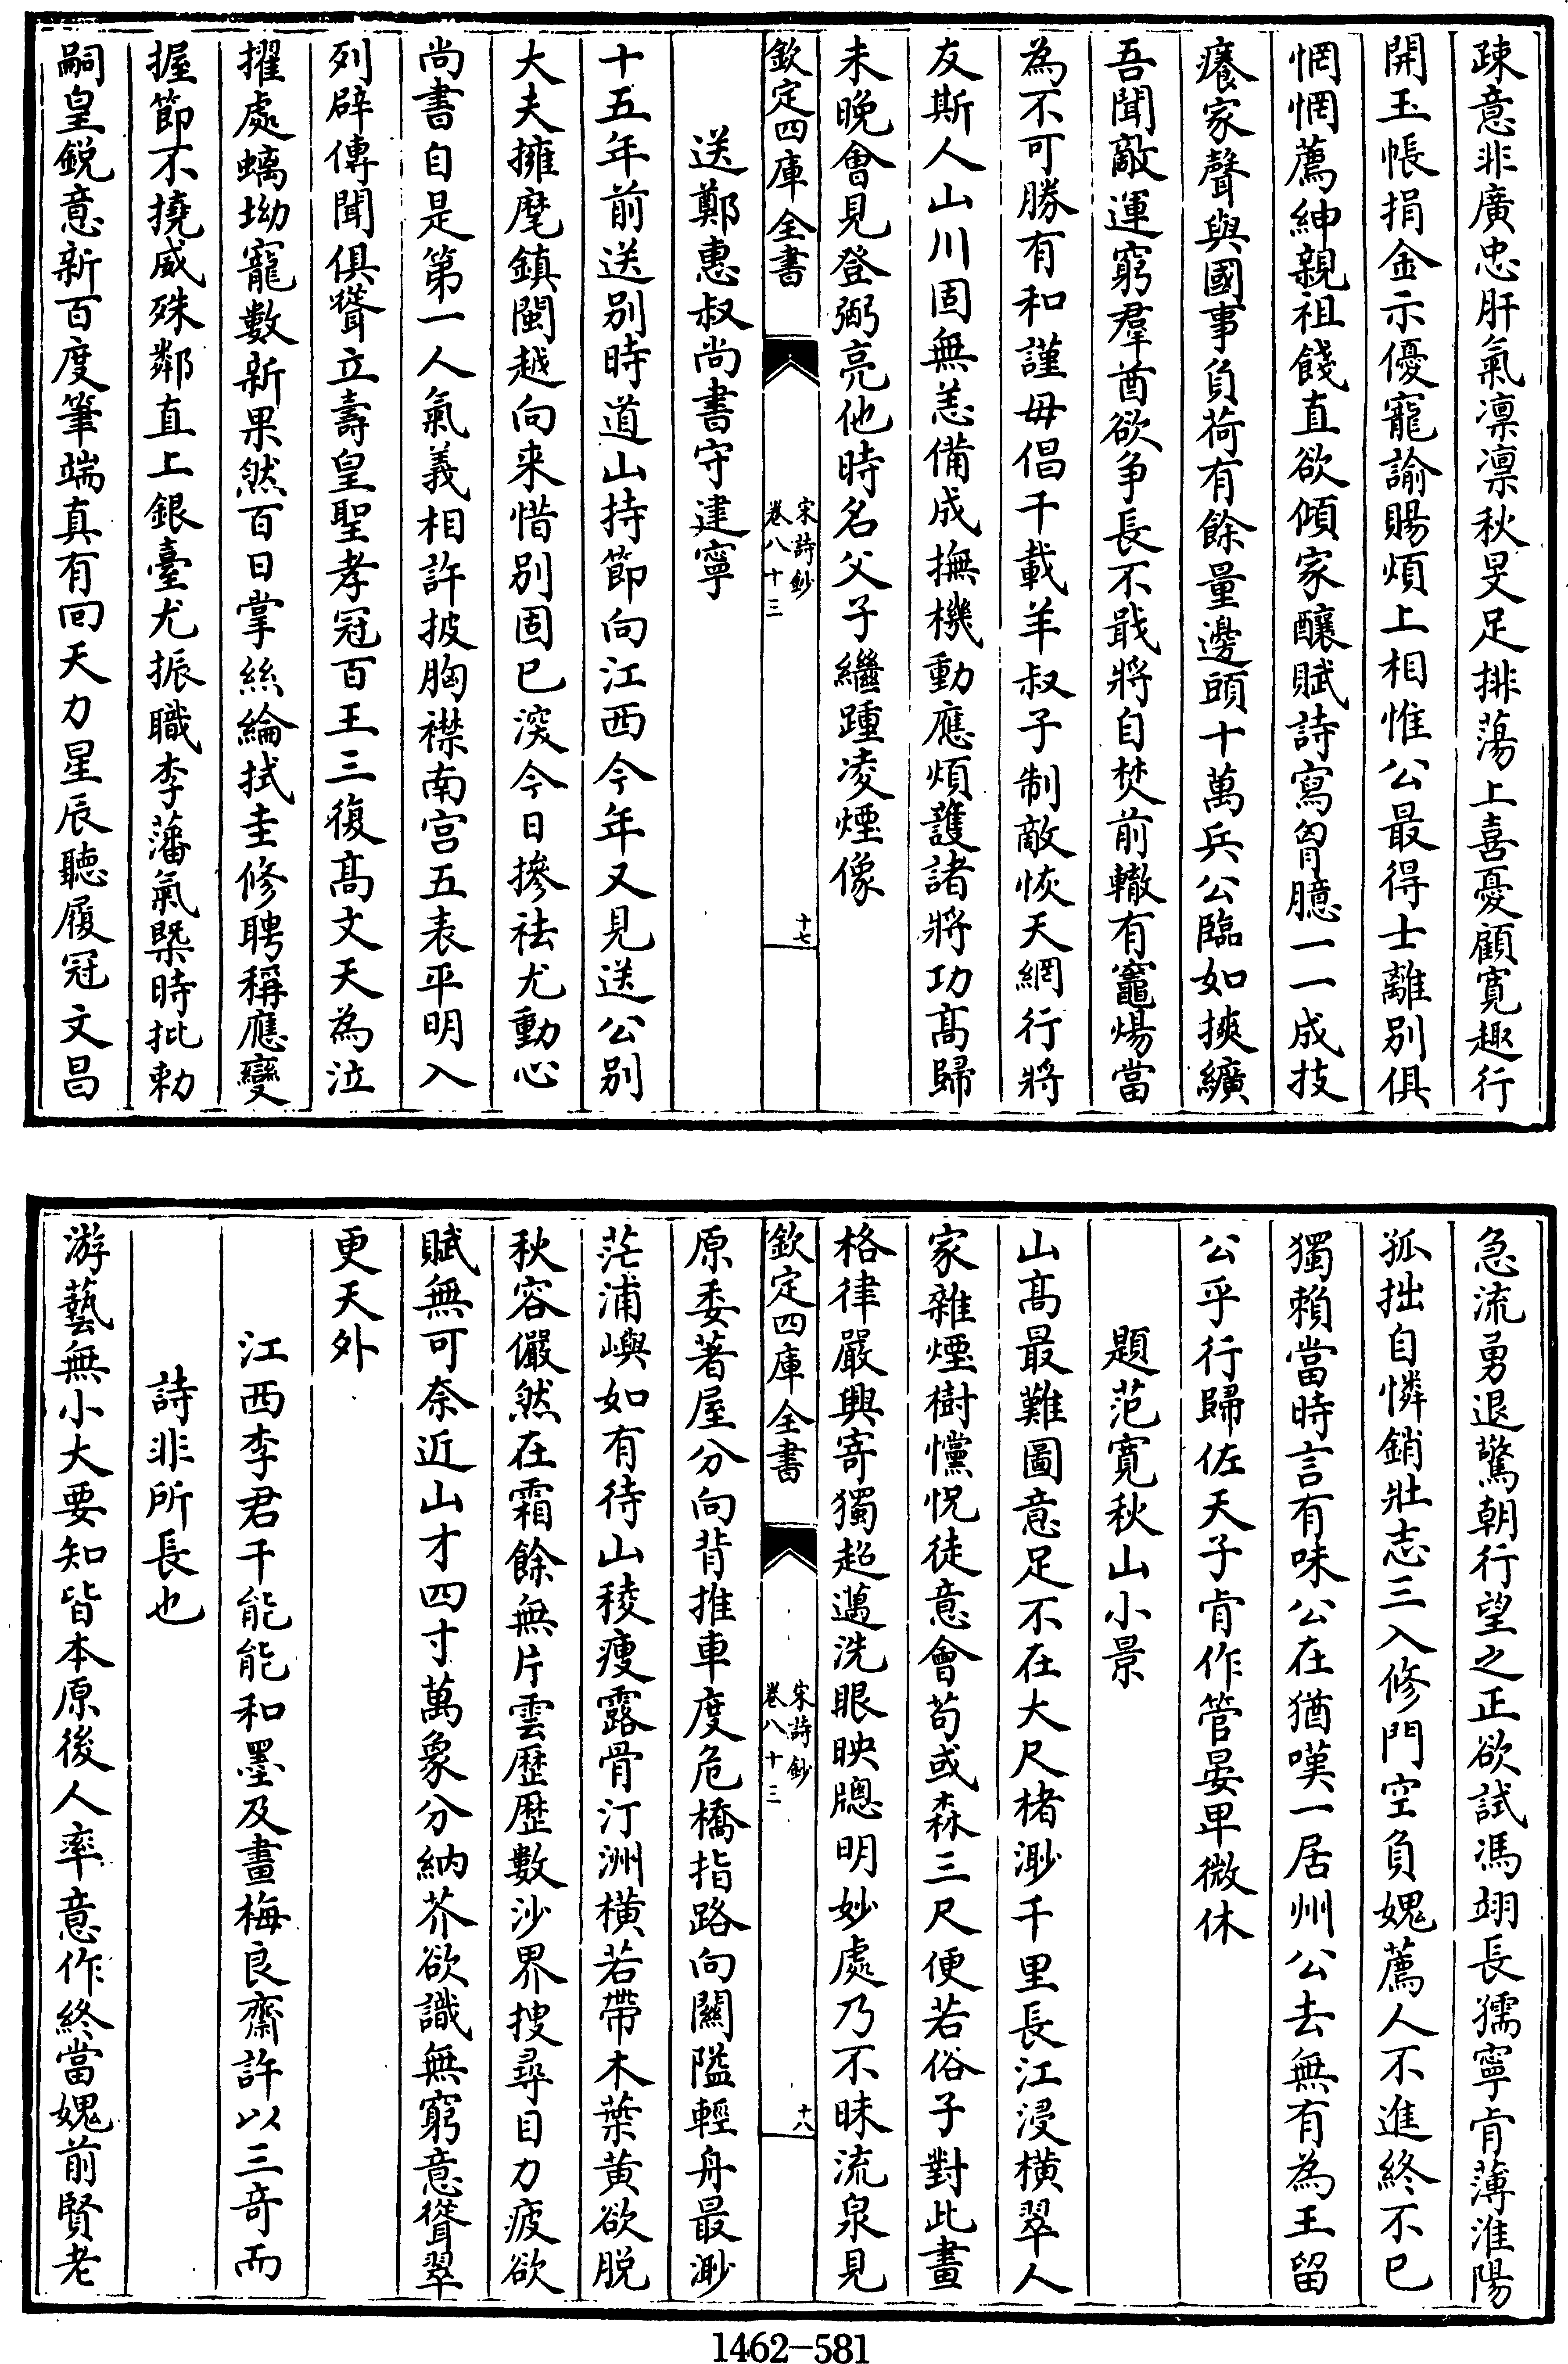 疎意非廣忠肝氣凛凛秋旻足排蕩上喜憂顧寛趣行
開玉帳捐金示優寵諭賜煩上相惟公最得士離別俱
惘惘薦紳親祖餞直欲傾家釀賦詩寫胷臆一一成技
癢家聲與國事負荷有餘量邊頭十萬兵公臨如挾纊
吾聞敵運窮羣酋欲争長不戢將自焚前轍有竈煬當
為不可勝有和謹毋倡千載羊叔子制敵恢天網行將
友斯人山川固無恙備成撫機動應煩護諸將功髙歸
未晚會見登弼亮他時名父子繼踵凌煙像
欽定四庫全書
宋詩鈔
卷八十三
十七
送鄭惠叔尚書守建寧
十五年前送别時道山持節向江西今年又見送公别
大夫擁麾鎮閩越向来惜别固已深今日摻袪尤動心
尚書自是第一人氣義相許披胸襟南宫五表平明入
列辟傳聞俱聳立壽皇聖孝冠百王三復髙文天為泣
擢處螭坳寵數新果然百日掌絲綸拭圭修聘稱應變
握節不撓威殊鄰直上銀臺尤振職李藩氣槩時批勅
嗣皇鋭意新百度筆端真有回天力星辰聽履冠文昌
急流勇退驚朝行望之正欲試馮翊長孺寧肯薄淮陽
孤拙自憐銷壯志三入修門空負媿薦人不進終不已
獨賴當時言有味公在猶嘆一居州公去無有為王留
公乎行歸佐天子肯作管晏卑微休
題范寛秋山小景
山髙最難圖意足不在大尺楮渺千里長江浸横翠人
家雜煙樹懭怳徒意會苟或森三尺便若俗子對此畫
格律嚴興寄獨超邁洗眼映牎明妙處乃不昧流泉見
欽定四庫全書
宋詩鈔
卷八十三
十八
原委著屋分向背推車度危橋指路向闗隘輕舟最渺
茫浦嶼如有待山稜瘦露骨汀洲横若帶木葉黄欲脱
秋容儼然在霜餘無片雲歷歷數沙界搜尋目力疲欲
賦無可奈近山才四寸萬象分納芥欲識無窮意聳翠
更天外
江西李君千能能和墨及畫梅良齋許以三奇而
詩非所長也
游藝無小大要知皆本原後人率意作終當媿前賢老
1462-581